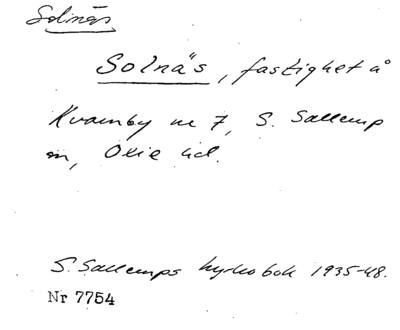 Solnäs
Solnäs, fastighet å
Kvarnby nr 7, S. Sallerup
sn, Oxie hd.
S. Sallerups kyrkobok 1935-48.
Nr 7754